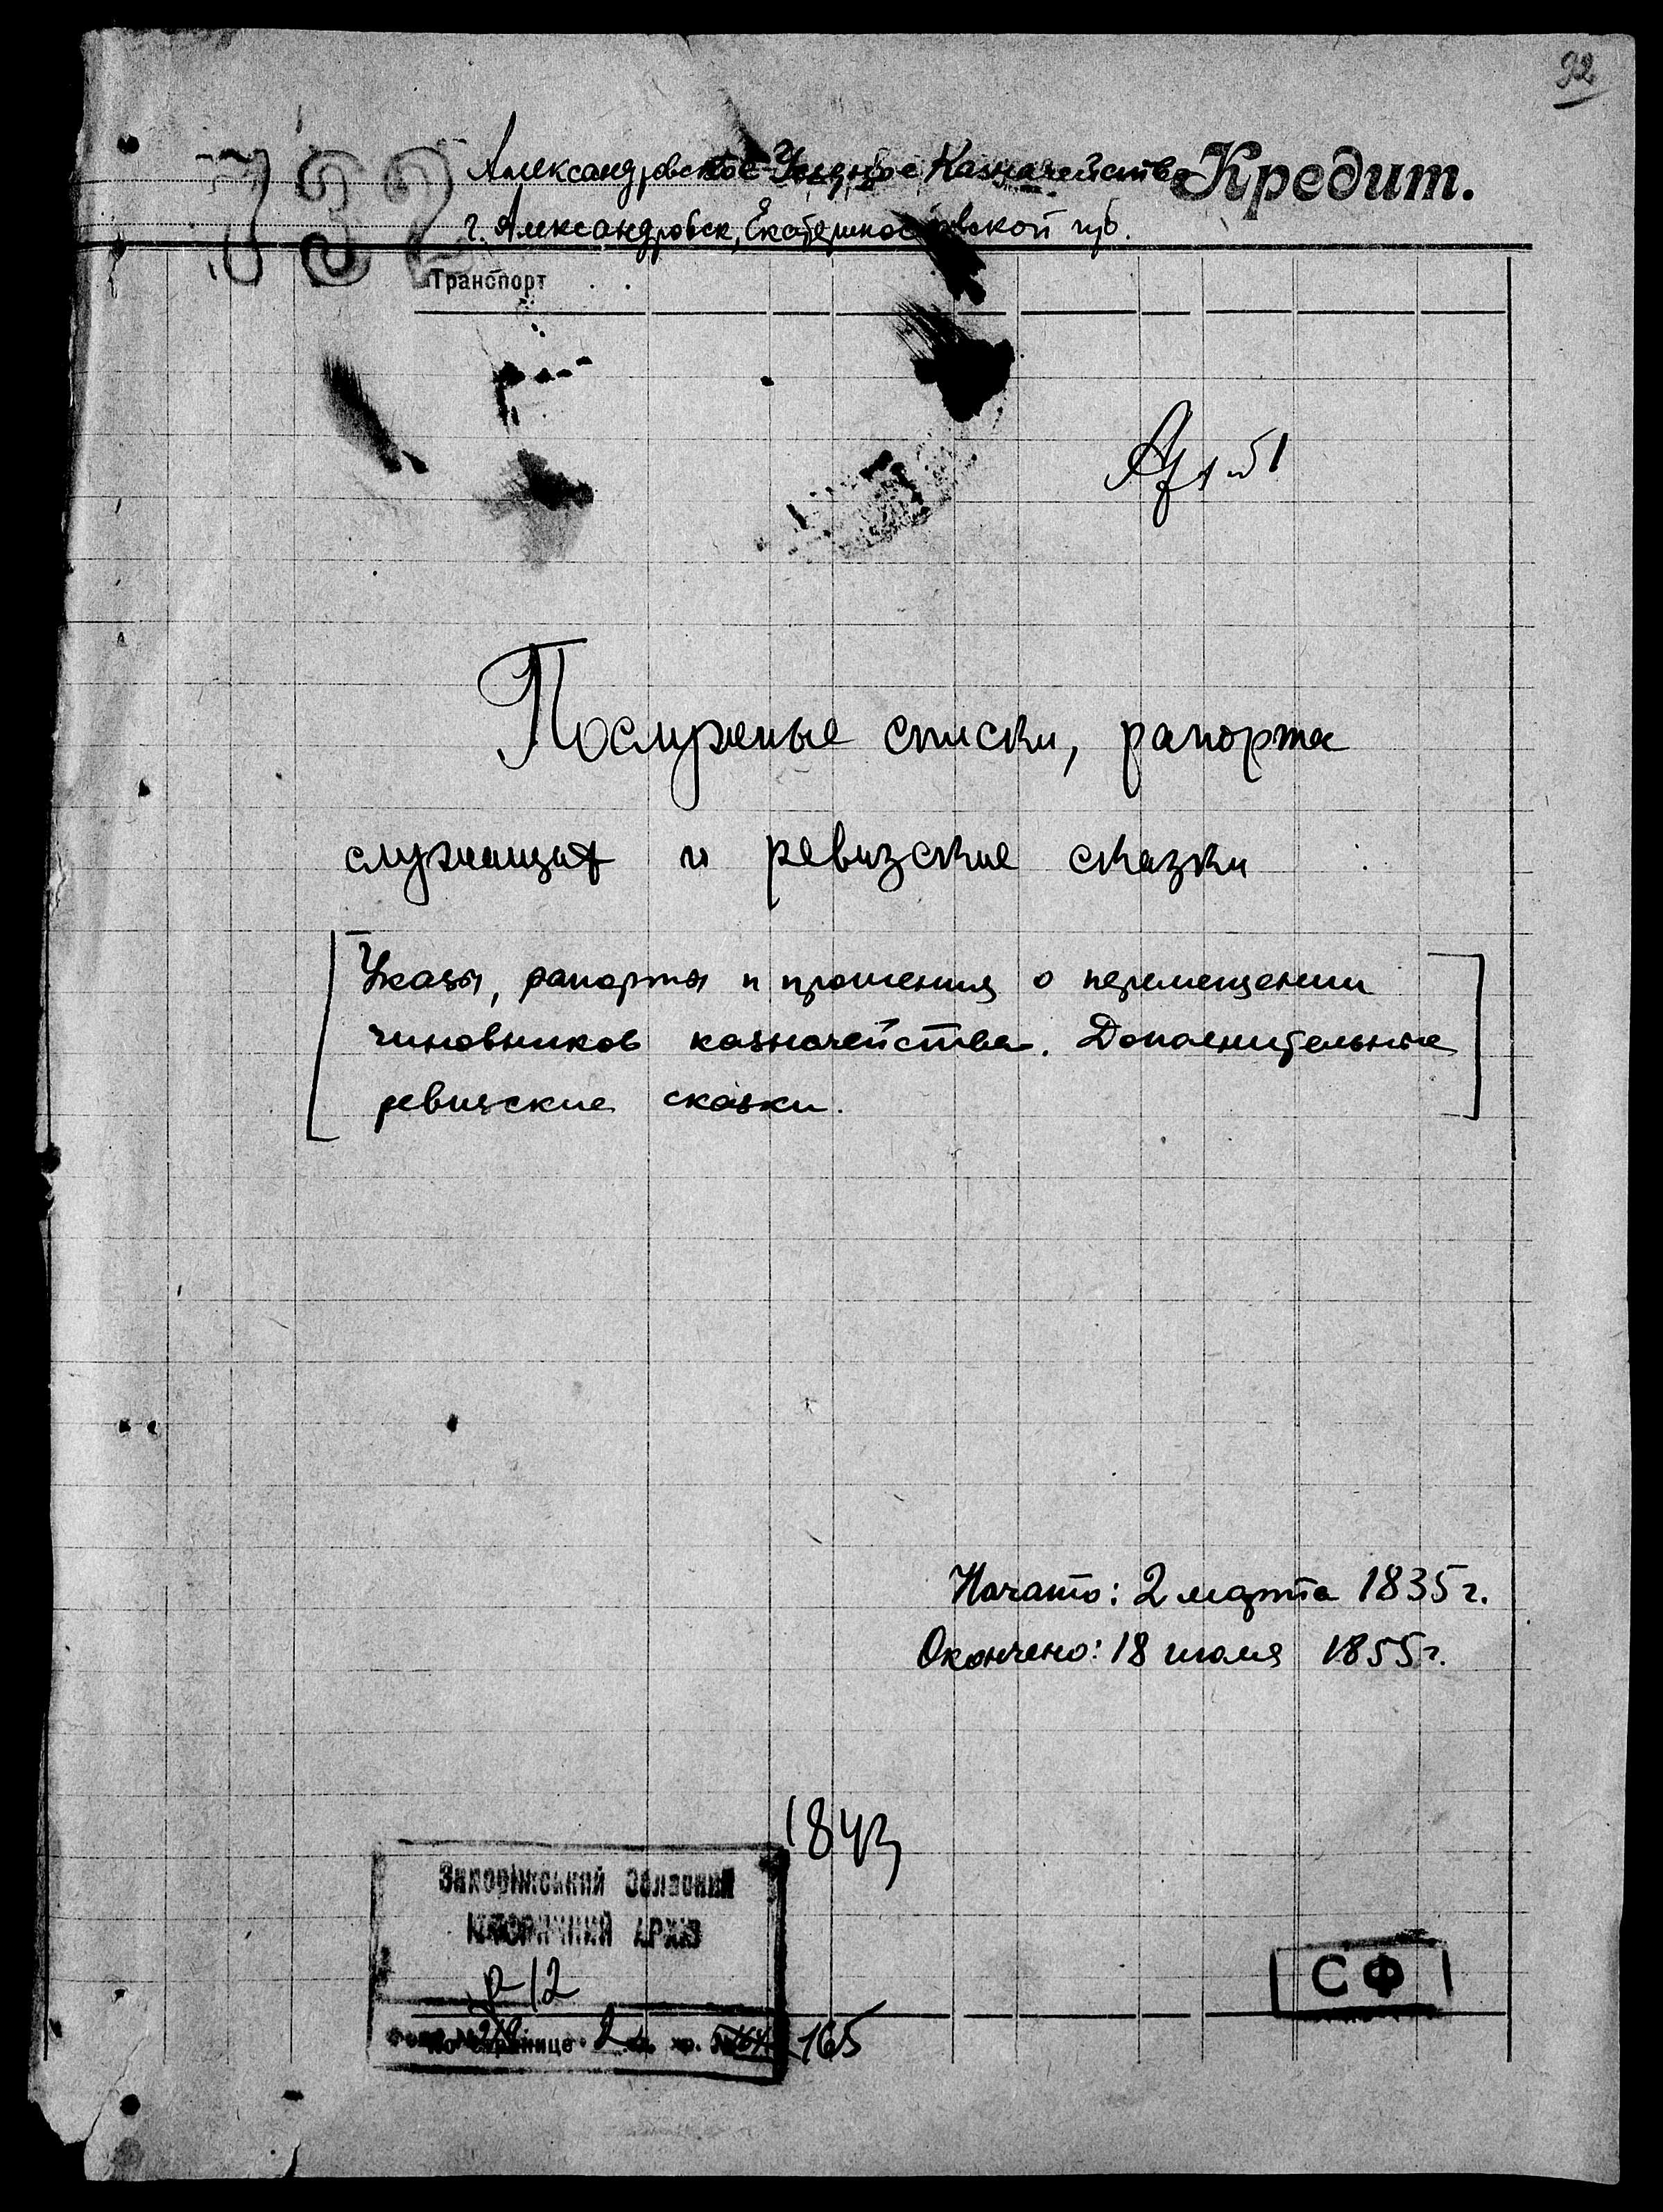 92
782
Александровское Уездное Казначейство
Кредит.
г. Александровск, Екатеринославской губ.
Транспорт . .
Послужные списки, рапорта
служащих и ревизские сказки
Указы, рапорты и прошения о перемещении
чиновников казначейства. Дополнительные
ревизские сказки.
Начато: 2 марта 1835 г.
Окончено: 18 июля 1855 г.
1843
Запорiжський Обласний
Iсторичний Архiв
р-12
165
СФ